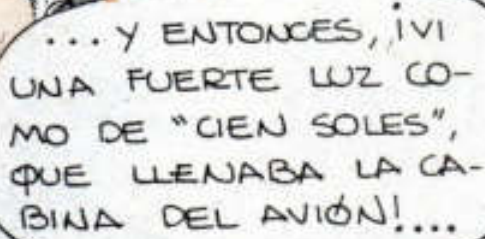 ...Y ENTONCES, ¡VI
UNA FUERTE LUZ CO-
MO DE "CIEN SOLES",
QUE LLENABA LA CA-
BINA DEL AVIÓN!....